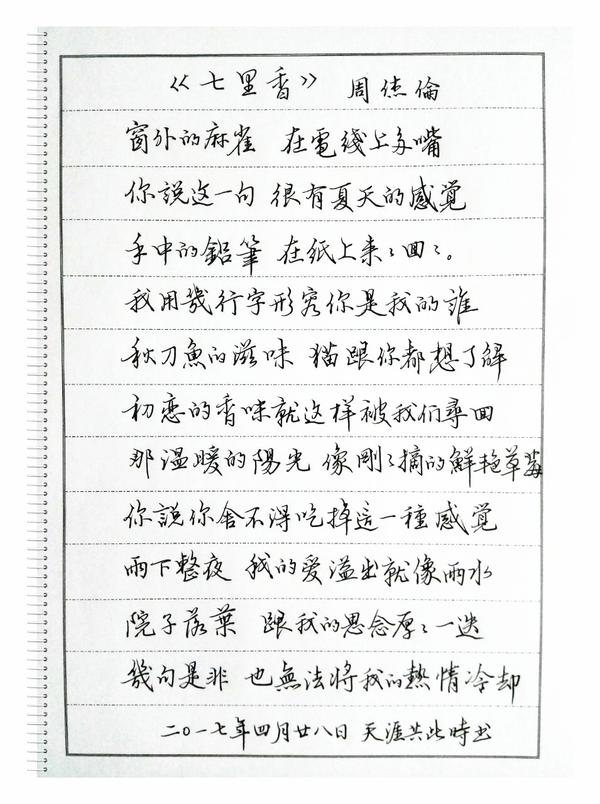 《七里香》 周傑倫
窗外的麻雀 在電綫上多嘴
你說这一句 很有夏天的感觉
手中的鉛筆 在纸上来〻回〻。
我用幾行字形容你是我的誰
秋刀魚的滋味 猫跟你都想了解
初恋的香味就这样被我们尋回
那温暖的陽光 像剛〻摘的鮮艳草莓
你說你舍不得吃掉這一種感觉
雨下整夜 我的爱溢出就像雨水
院子落葉 跟我的思念厚〻一迭
幾句是非 也無法將我的熱情冷却
二〇一七年四月廿八日 天涯共此時书